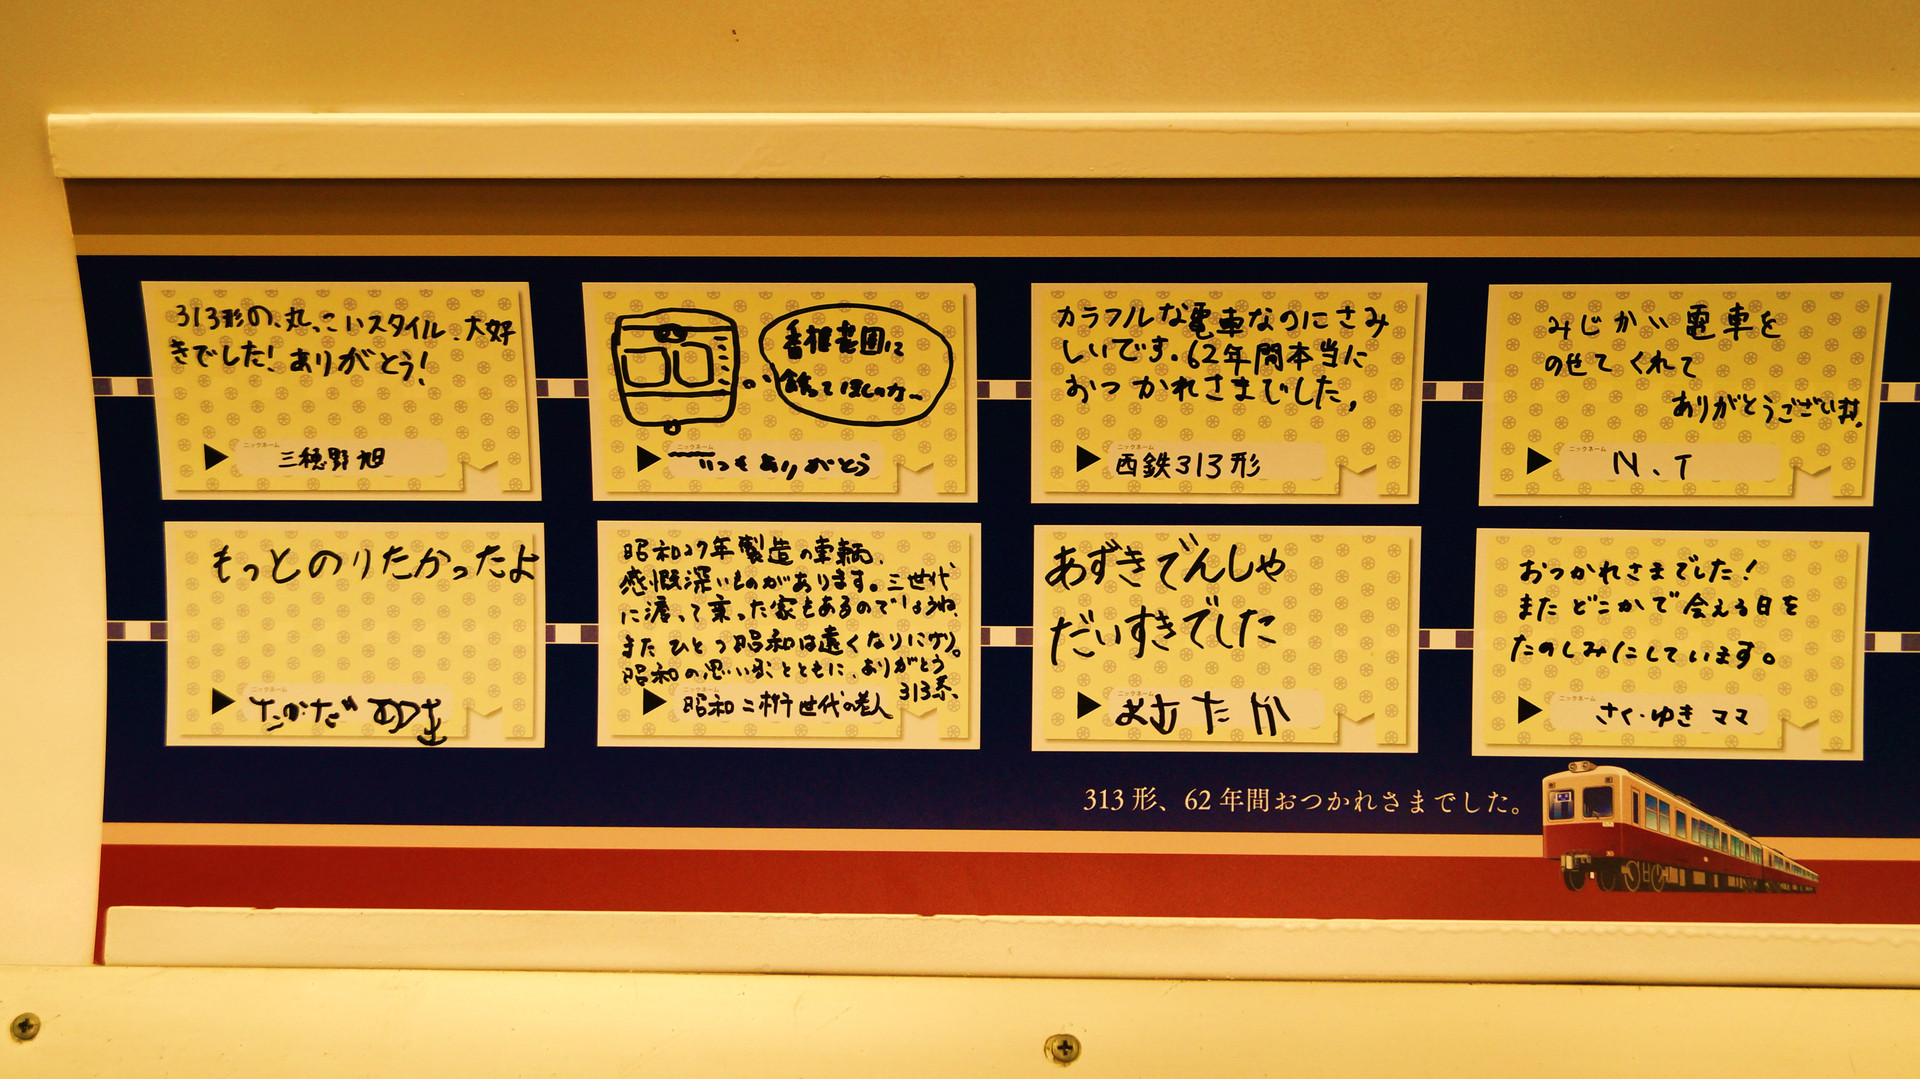 313形の丸っこいスタイル、大好
きでした！ありがとう！
ニックネーム
三穂野旭
香椎花園に
飾ってほしいな〜
いつもありがとう
カラフルな電車なのにさみ
しいです。62年間本当に
おつかれさまでした。
ニックネーム
西鉄313形
みじかい電車を
のせてくれて
ありがとうございます。
ニックネーム
N.T
もっとのりたかったよ
ニックネーム
昭和27年製造の車輌、
感慨深いものがあります。三世代
に渡って乗った家もあるのでしょうね。
またひとつ昭和は遠くなりにけり。
昭和の思い出とともに、ありがとう
313系、
ニックネーム
昭和二桁世代の老人
あずきでんしゃ
だいすきでした
ニックネーム
おつかれさまでした！
またどこかで会える日を
たのしみにしています。
ニックネーム
さく・ゆきママ
313形、62年間おつかれさまでした。